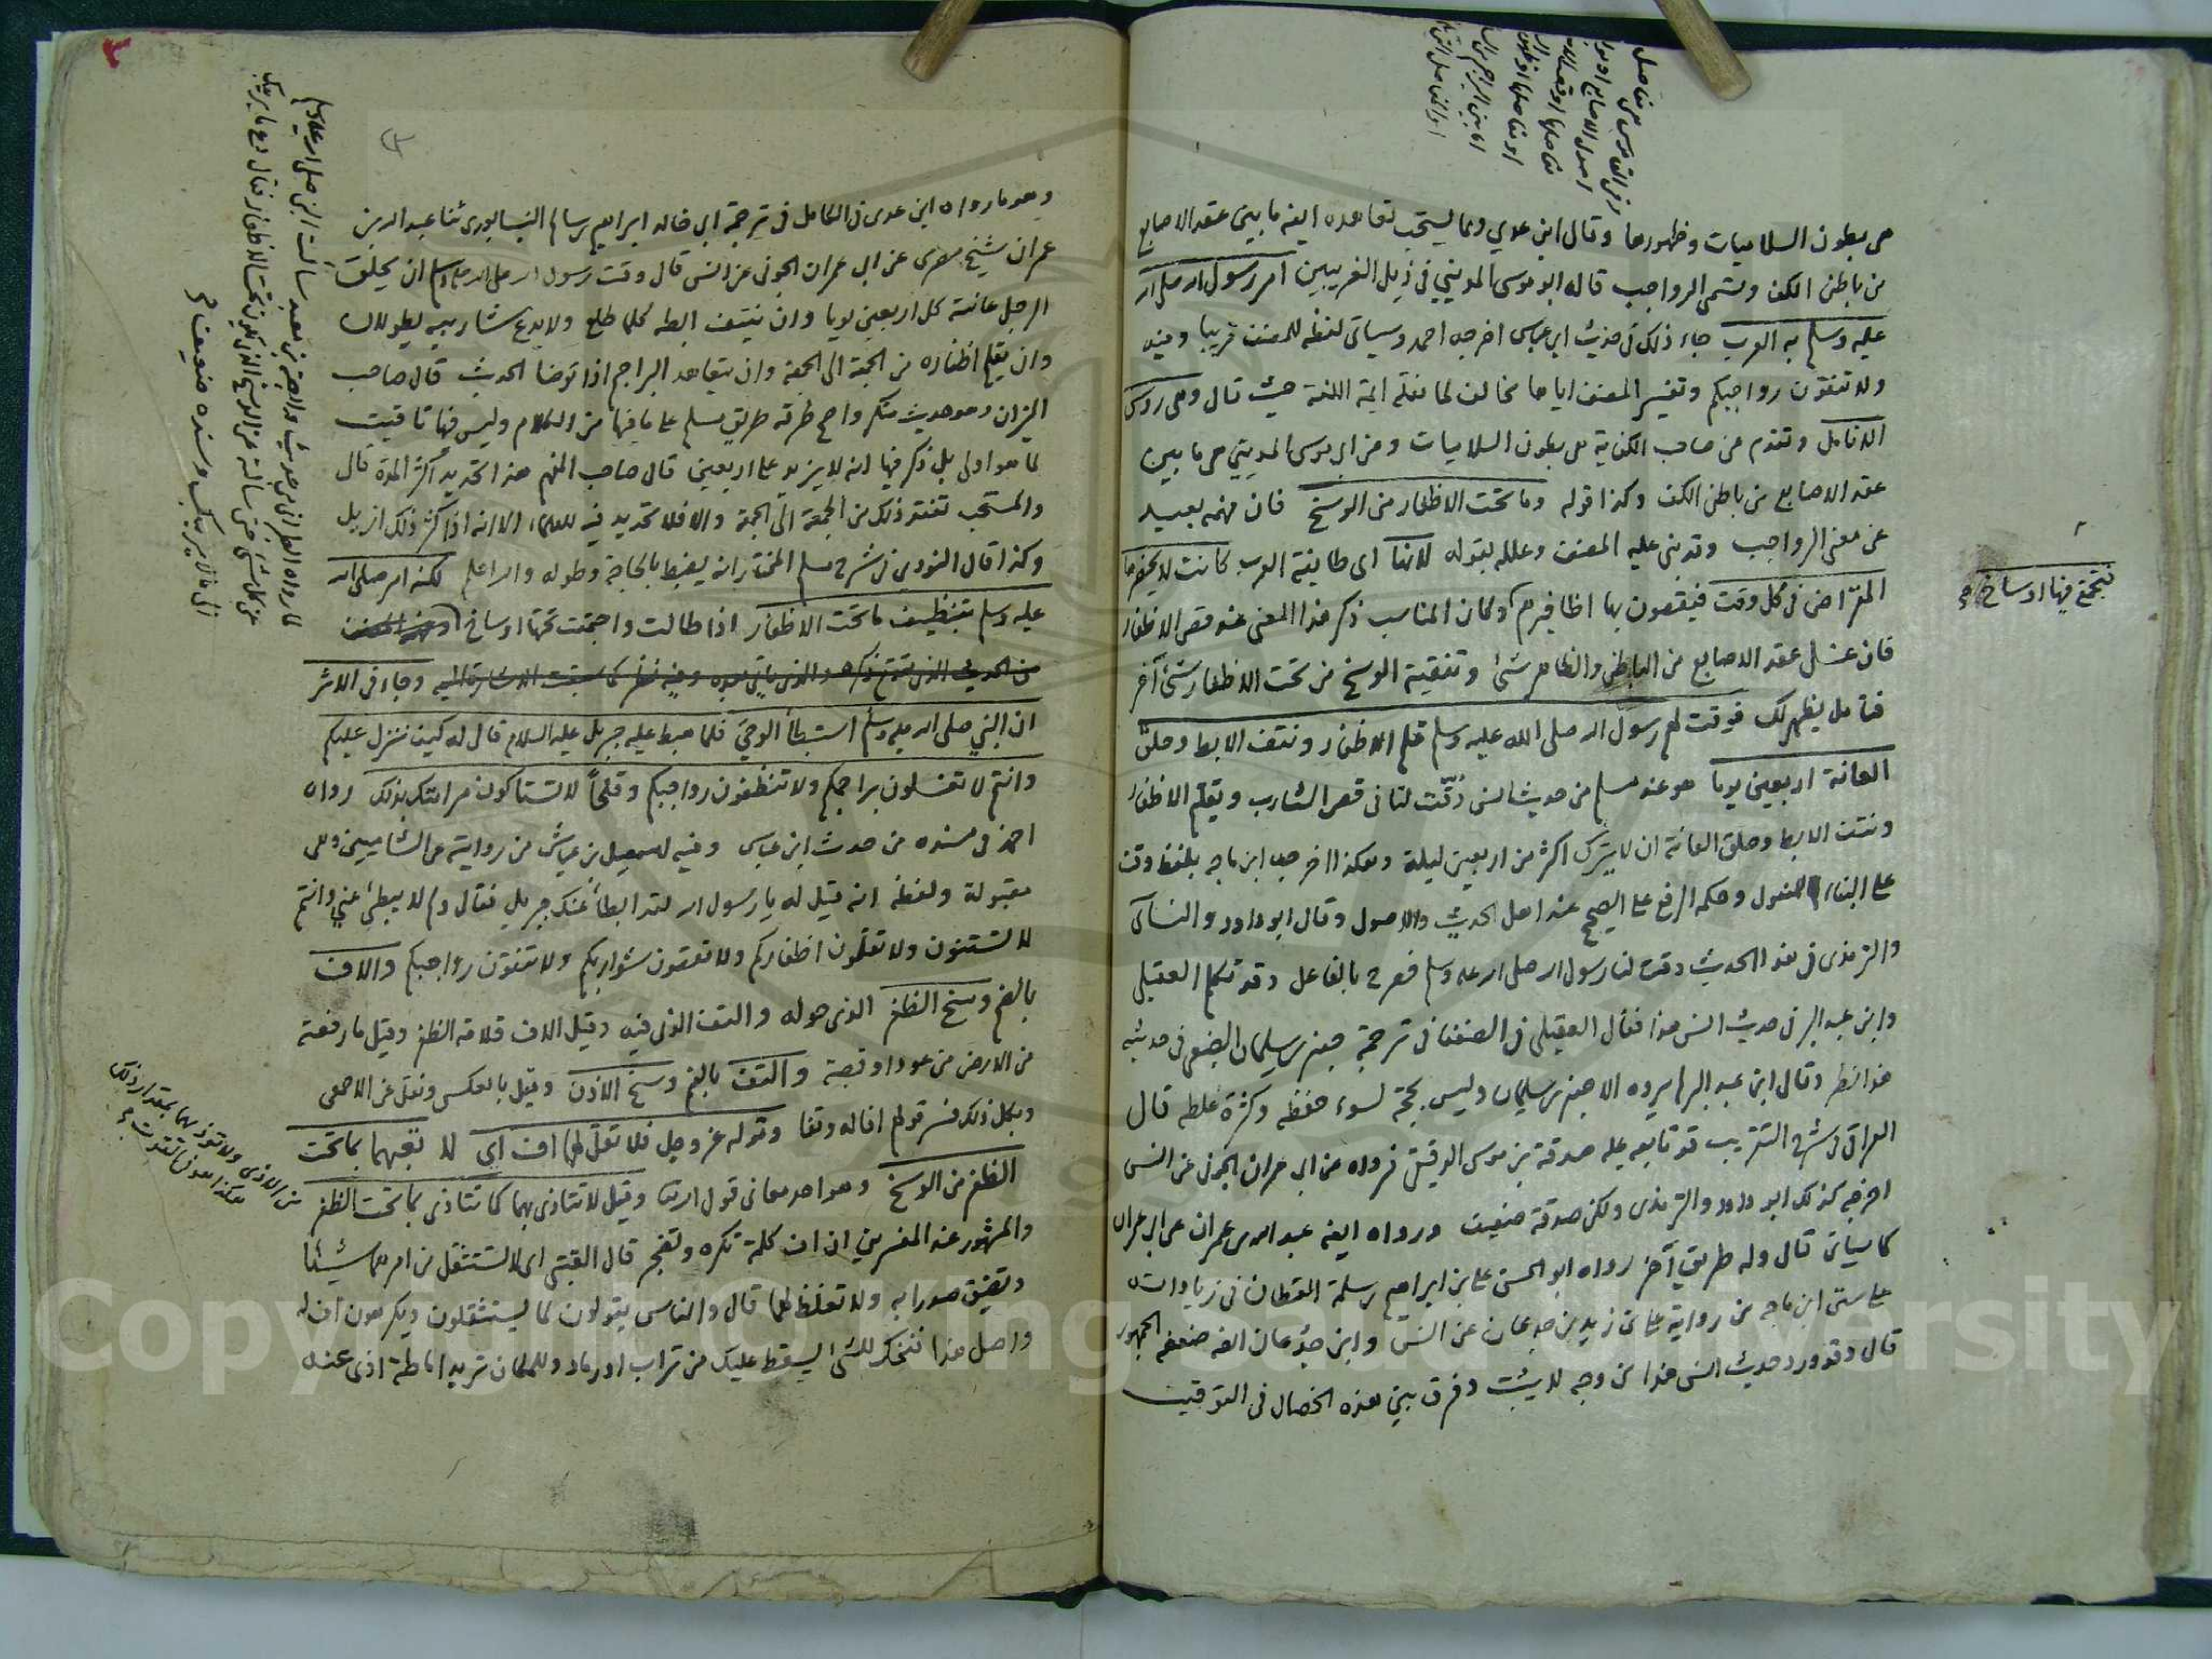 هي بطون السلاميات وظهورها وقال ابن عدي ومما يستحب تعاهده ايضا ما بين عقد الاصابع
من باطن الكف وتسمى الرواجب قاله ابو موسى المديني في ذيل الغريبين امر رسول الله صلى الله
عليه وسلم به العرب جاء ذلك في حديث ابن عباس اخرجه احمد وسياتي لفظه للمصنف قريبا وفيه
ولا تنقون رواجبكم وتفسير المصنف اياها مخالف لما نقله ايمة اللغة حيث قال وهي روس
الانامل وتقدم عن صاحب الكفاية هي بطون السلاميات وعن ابي موسى المديني هي ما بين
عقد الاصابع من باطن الكف وكذا قوله وما تحت الاظفار من الوسخ فان فهمه بعيد
عن معنى الرواجب وقد بنى عليه المصنف وعلله بقوله لانها اى طايفة العرب كانت لا يحضرها
المقراض في كل وقت فيقصون بها اظافيرهم وكان المناسب ذكر هذا المعنى عند قص الاظفار
فان غسل عقد الاصابع من الباطن والظاهر شئ وتنقية الوسخ من تحت الاظفار شئ آخر
فتأمل يظهر لك فوقت لهم رسول الله صلى الله عليه وسلم قلم الاظفار ونتف الابط وحلق
العانة اربعين يوما هو عند مسلم من حديث انس وقت لنا في قص الشارب وتقليم الاظفار
ونتف الابط وحلق العانة ان لا يترك اكثر من اربعين ليلة وهكذا اخرجه ابن ماجه بلفظ وقت
على البناء للمفعول وحكمه الرفع على الصحيح عند اهل الحديث والاصول وقال ابو داود والنسائى
والترمذى في هذا الحديث وقت لنا رسول الله صلى الله عليه وسلم فصرح بالفاعل وقد تكلم العقيلي
وابن عبد البر في حديث انس هذا فقال العقيلي في الضعفا في ترجمة جعفر بن سليمان الضبعي في حديثه
هذا نظر وقال ابن عبد البر لم يروه الا جعفر بن سليمان وليس بحجة لسوء حفظه وكثرة غلطه قال
العراقي في شرح التقريب قد تابعه عليه صدقة بن موسى الدقيقي فرواه عن ابي عمران الجوني عن انس
اخرجه كذلك ابو داود والترمذى ولكن صدقة ضعيف ورواه ايضا عبد الله بن عمران عن ابي عمران
كما سياتي قال وله طريق آخر رواه ابو الحسن علي بن ابراهيم بن سلمة القطان في زياداته
على سنن ابن ماجه من رواية علي بن زيد بن جدعان عن انس وابن جدعان ايضا ضعفه الجمهور
قال وقد ورد حديث انس هذا من وجه لا يثبت وفرق بين هذه الخصال في التوقيت
فتجتمع فيها اوساخ
وهو ما رواه ابن عدى في الكامل في ترجمة ابي خالد ابراهيم بن سالم النيسابورى ثنا عبد الله بن
عمران شيخ مصرى عن ابي عمران الجوني عن انس قال وقت رسول الله صلى الله عليه وسلم ان يحلق
الرجل عانته كل اربعين يوما وان ينتف ابطه كلما طلع ولا يدع شاربيه يطولان
وان يقلم اظفاره من الجمعة الى الجمعة وان يتعاهد البراجم اذا توضأ الحديث قال صاحب
الميزان وهو حديث منكر واصح طرقه طريق مسلم على ما فيها من الكلام وليس فيها تاقيت
لما هو اولى بل ذكر فيها انه لا يزيد على اربعين قال صاحب المفهم هذا تحديد اكثر المدة قال
والمستحب تفقد ذلك من الجمعة الى الجمعة والا فلا تحديد فيه للعلماء الا انه اذا كثر ذلك ازيل
وكذا قال النووى في شرح مسلم المختار انه يضبط بالحاجة وطوله والله اعلم لكنه امر صلى الله
عليه وسلم بتنظيف ما تحت الاظفار اذا طالت واجتمعت تحتها اوساخ
وجاء في الاثر
ان النبي صلى الله عليه وسلم استبطأ الوحي فلما هبط عليه جبريل عليه السلام قال له كيف ننزل عليكم
وانتم لا تغسلون براجمكم ولا تنظفون رواجبكم وقلحا لا تستاكون مر امتك بذلك رواه
احمد في مسنده من حديث ابن عباس وفيه اسمعيل بن عياش من روايته عن الشاميين وهى
مقبولة ولفظه انه قيل له يا رسول الله لقد ابطأ عنك جبريل فقال ولم لا يبطئ عني وانتم
لا تستنون ولا تقلمون اظفاركم ولا تقصون شواربكم ولا تنقون رواجبكم والاف
بالضم وسخ الظفر الذى حوله والتف الذى فيه وقيل الاف قلامة الظفر وقيل ما رفعته
من الارض من عود او قصبة والتف بالضم وسخ الاذن وقيل بالعكس ونقل عن الاصمعى
وبكل ذلك فسر قولهم افا له وتفا وقوله عز وجل فلا تقل لهما اف اى لا تعبهما بما تحت
الظفر من الوسخ وهو احد معاني قول الله تعالى وقيل لا تتاذى بهما كما تتاذى بما تحت الظفر
والمشهور عند المفسرين ان اف كلمة تكره وتضجر قال القتبى اى لا تستثقل من امرهما شيئا
وتضيق صدرا به ولا تغلظ لهما قال والناس يقولون لما يستثقلون ويكرهون اف له
واصل هذا نفخك للشئ يسقط عليك من تراب او رماد وللمكان تريد اماطة اذى عنه
لما رواه الطبراني من حديث وابصة بن معبد سألت النبي صلى الله عليه وسلم
عن كل شئ حتى سألته عن الوسخ الذى يكون تحت الاظفار فقال دع ما يريبك
الى ما لا يريبك وسنده ضعيف
من الاذى ولا تؤذهما بمقدار ذلك
هكذا هو في القوت
٣